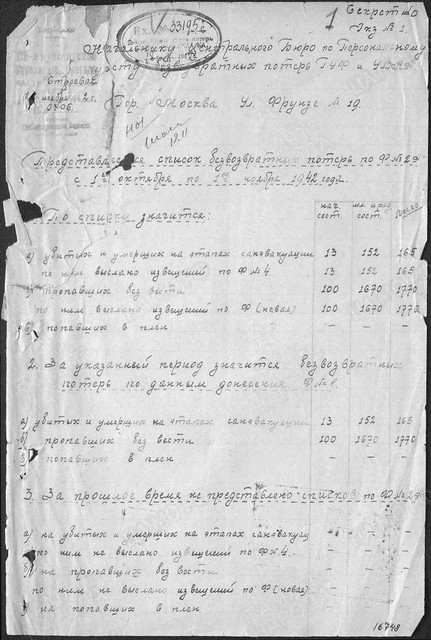 Секретно
Экз № 1.
Вх. № 33195с
Начальнику Центрального Бюро по Персональному
учету безвозвратных потерь ГУФ и УВ КА
Гор. Москва ул. Фрунзе № 19.
Строевое
ноября 42 г.
0706
Представляется список безвозвратных потерь по ф № 2Э
с 1го октября по 1ое ноября 1942 года.
1. По списку значится: нач. сост. мл. и ряд. сост. Всего
а) убитых и умерших на этапах санэвакуации 13 152 165
по ним выслано извещений по Ф № 4. 13 152 165
б) пропавших без вести 100 1670 1770
по ним выслано извещений по Ф (новая) 100 1670 1770
в) попавших в плен - - -
2. За указанный период значится безвозвратных
потерь по данным донесения Ф № 8.
а) убитых и умерших на этапах санэвакуации 13 152 165
б) пропавших без вести 100 1670 1770
в) попавших в плен - - -
3. За прошлое время не представлено списков по Ф № 2Э
а) на убитых и умерших на этапах санэвакуац - - -
по ним не выслано извещений по Ф № 4. - - -
б) на пропавших без вести - - -
по ним не выслано извещений по Ф (новая) - - -
в) на попавших в плен - - -
16748